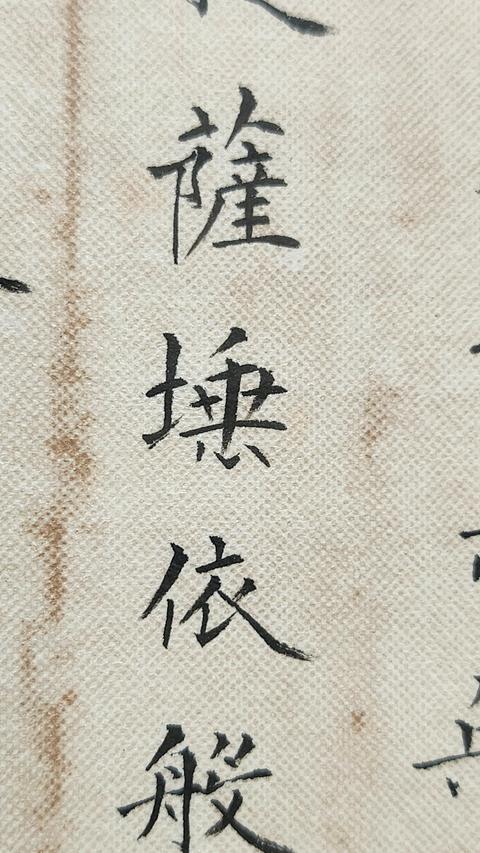 薩埵依般